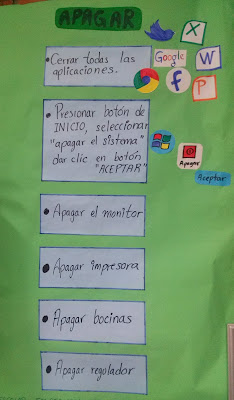 APAGAR
• Cerrar todas las
aplicaciones.
X
Google
W
P
f
• Presionar botón de
INICIO, seleccionar
"apagar el sistema"
dar clic en botón
"ACEPTAR"
Apagar
Aceptar
• Apagar el monitor
• Apagar impresora
• Apagar bocinas
• Apagar regulador